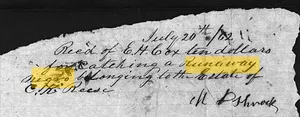 July 20th /62
Recd of E. H. Cox ten dollars
for catching a Runaway
negro belonging to the Estate of
C. H. Reese
M P Shrock